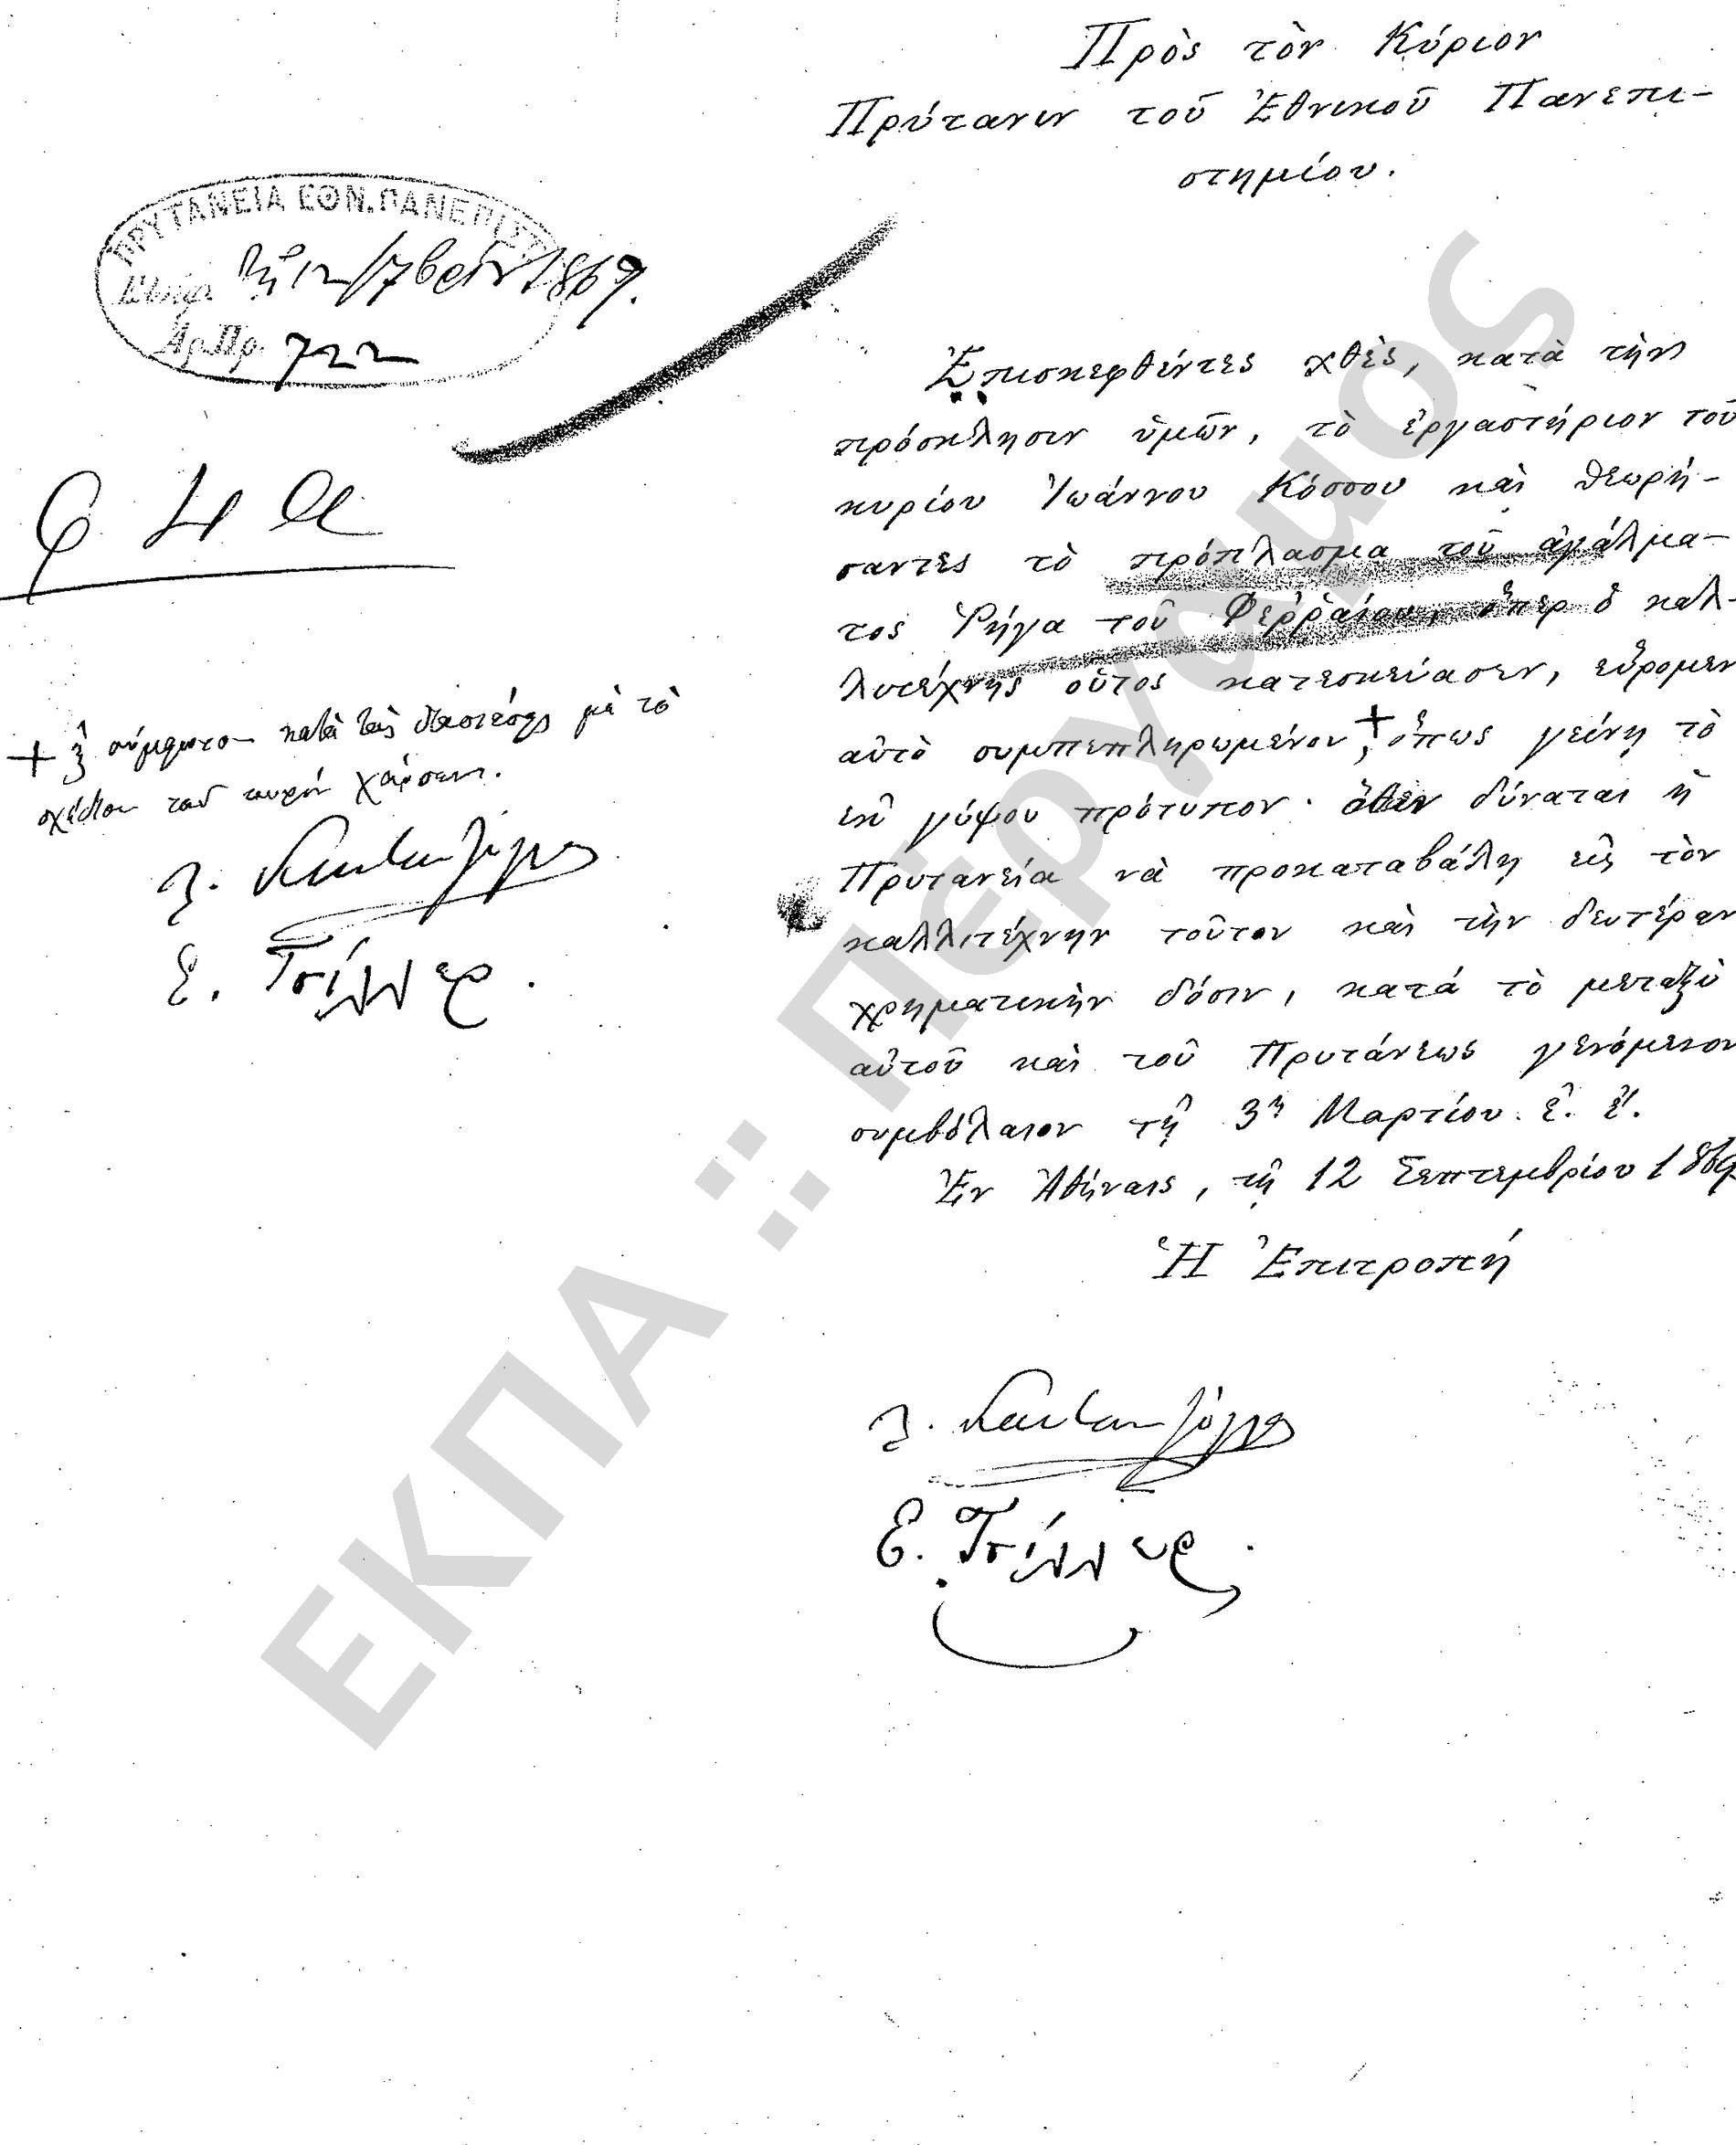 Πρὸς τὸν Κύριον
Πρύτανιν τοῦ Ἐθνικοῦ Πανεπι-
στημίου.
ΠΡΥΤΑΝΕΙΑ ΕΘΝ. ΠΑΝΕΠΙΣΤ
τῇ 12/7βρίου 1869.
Ἀρ. Πρ. 722
Ἐπισκεφθέντες χθὲς, κατὰ τὴν
πρόσκλησιν ὑμῶν, τὸ ἐργαστήριον τοῦ
κυρίου Ἰωάννου Κόσσου καὶ θεωρή-
σαντες τὸ πρόπλασμα τοῦ ἀγάλμα-
τος Ῥήγα τοῦ Φεῤῥαίου, ὅπερ ὁ καλ-
λιτέχνης οὗτος κατεσκεύασεν, εὕρομεν
αὐτὸ συμπεπληρωμένον +, ὅπως γείνῃ τὸ
ἐκ γύψου πρότυπον· ὅθεν δύναται ἡ
Πρυτανεία νὰ προκαταβάλῃ εἰς τὸν
καλλιτέχνην τοῦτον καὶ τὴν δευτέραν
χρηματικὴν δόσιν, κατὰ τὸ μεταξὺ
αὐτοῦ καὶ τοῦ Πρυτάνεως γενόμενον
συμβόλαιον τῇ 3ῃ Μαρτίου ἐ. ἔ.
Ἐν Ἀθήναις, τῇ 12 Σεπτεμβρίου 1869
Ἡ Ἐπιτροπή
Λ. Καυταντζόγλου
Ε. Τσίλλερ.
+ σύμφωνον κατὰ τὰς διαστάσεις μὲ τὸ
σχέδιον τοῦ κυρίου Χάνσεν.
Λ. Καυταντζόγλου
Ε. Τσίλλερ.
ΕΚΠΑ :: Πέργαμος